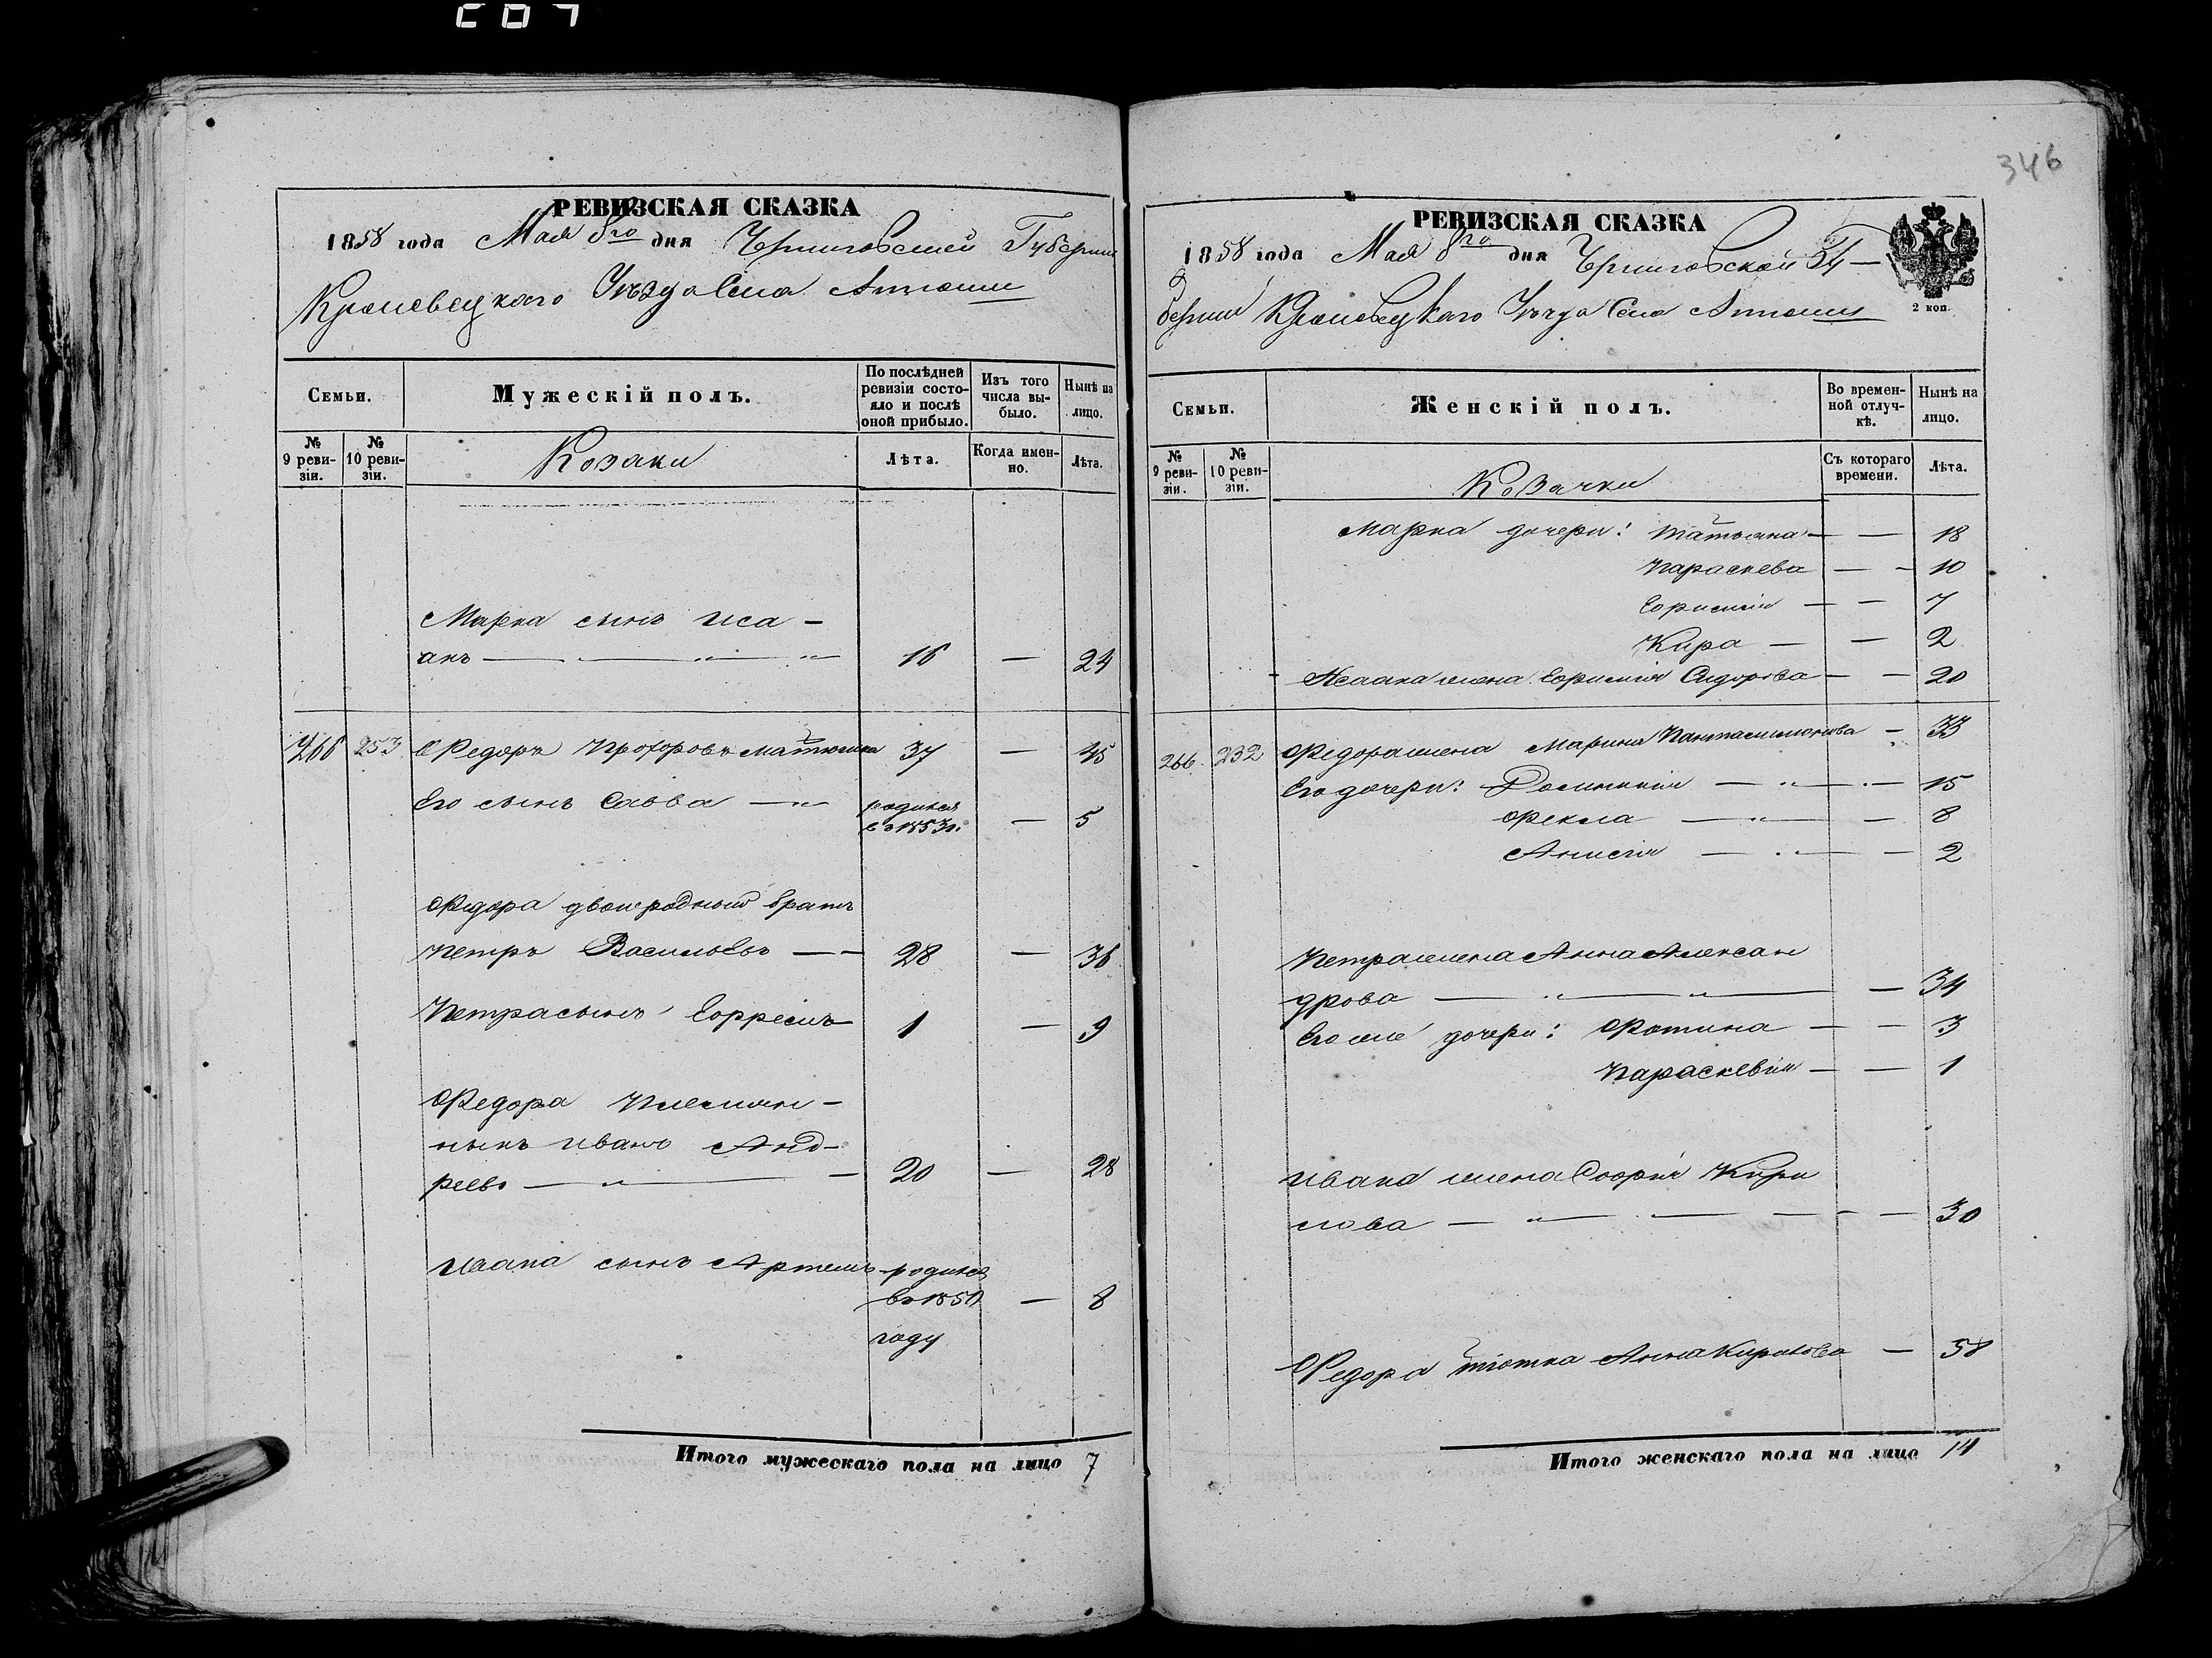 РЕВИЗСКАЯ СКАЗКА
1858 года Мая 8го дня Черниговской Губернии
Кролевецкаго Уѣзда Села
Семьи.
Мужескій полъ.
По послѣдней ревизіи состояло и послѣ оной прибыло.
Изъ того числа выбыло.
Нынѣ на лицо.
№ 9 ревизіи.
№ 10 ревизіи.
Козаки
Лѣта.
Когда именно.
Лѣта.
Марка сынъ Иса-
акъ — 16 — 24
266 253 Федоръ Прохоровъ Матюшка 37 — 45
Его сынъ Савва — родился въ 1853 г. — 5
Федора двоюродный братъ
Петръ Васильевъ — 28 — 36
Петра сынъ Ефремъ 1 — 9
Федора племян-
никъ Иванъ Анд-
реевъ — 20 — 28
Ивана сынъ Артемъ родился
въ 1850 — 8
году
Итого мужескаго пола на лицо 7
346
РЕВИЗСКАЯ СКАЗКА
1858 года Мая 8го дня Черниговской Гу-
берніи Кролевецкаго Уѣзда Села
2 коп.
Семьи.
Женскій полъ.
Во временной отлучкѣ.
Нынѣ на лицо.
№ 9 ревизіи.
№ 10 ревизіи.
Козачки
Съ котораго времени.
Лѣта.
Марка дочери: Татьяна — — 18
Параскева — — 10
Ефимия — — 7
Кира — — 2
Исаака жена Ефимия Сидорова — — 20
266 232 Федора жена Марина Пантелимонова — 33
Его дочери: — 15
Фекла — — 8
Анисия — — 2
Петра жена Анна Алексан
дрова — — 34
Его же дочери: Фотина — — 3
Параскевия — — 1
Ивана жена Софія Кири
лова — — 30
Федора тіотка Анна Кирилова — 58
Итого женскаго пола на лицо 14